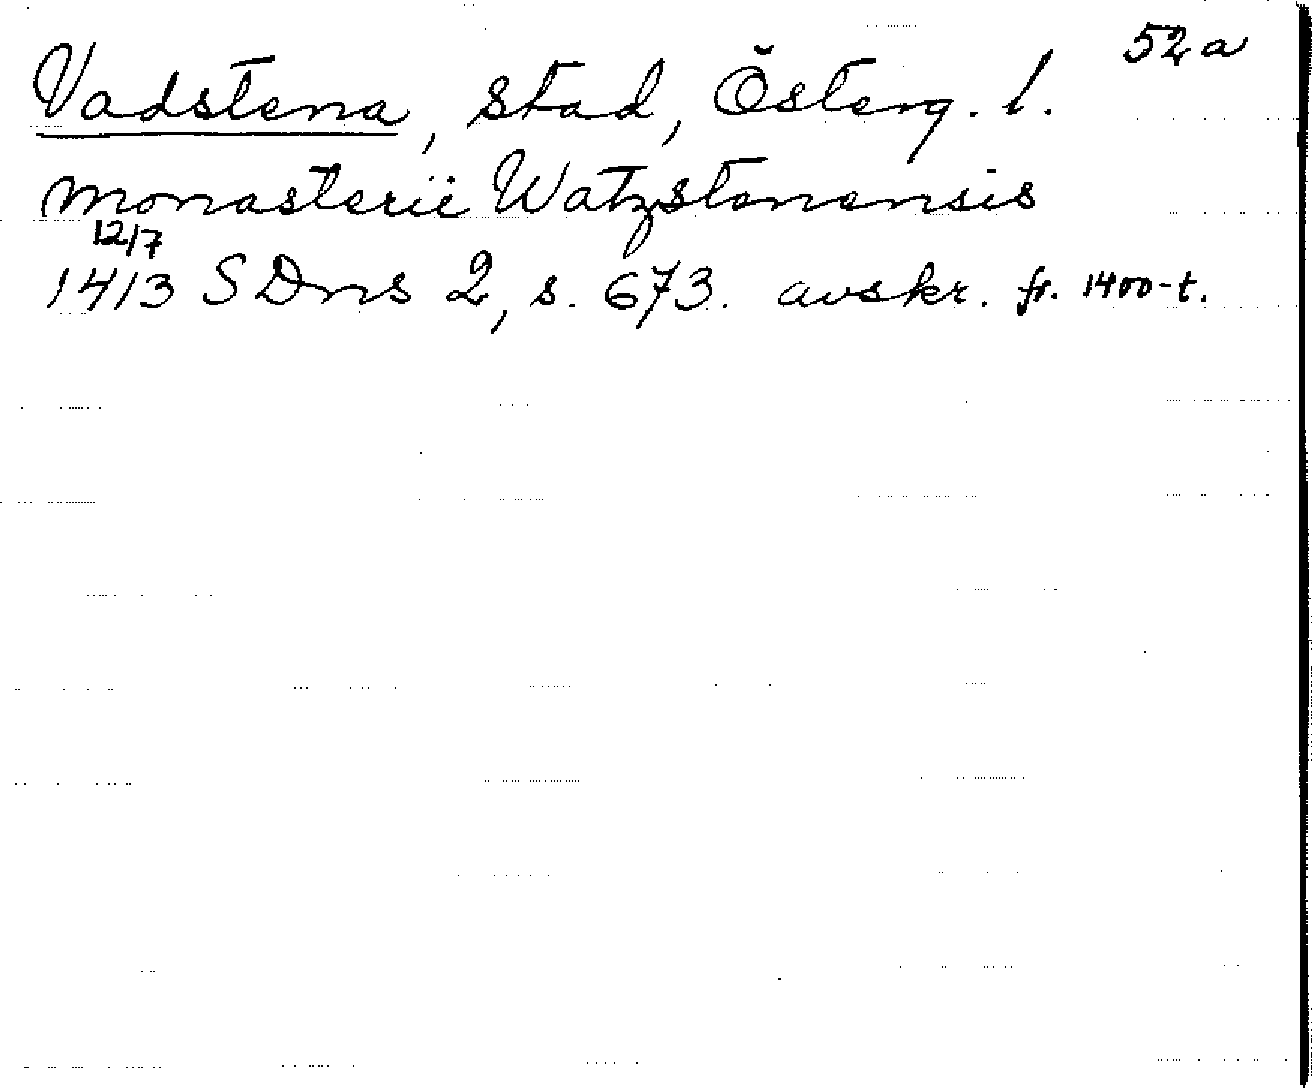 52 a
Vadstena, stad, Österg. l.
monasterii Watzstenensis
12/7
1413 SDns 2, s. 673. avskr. fr. 1400-t.